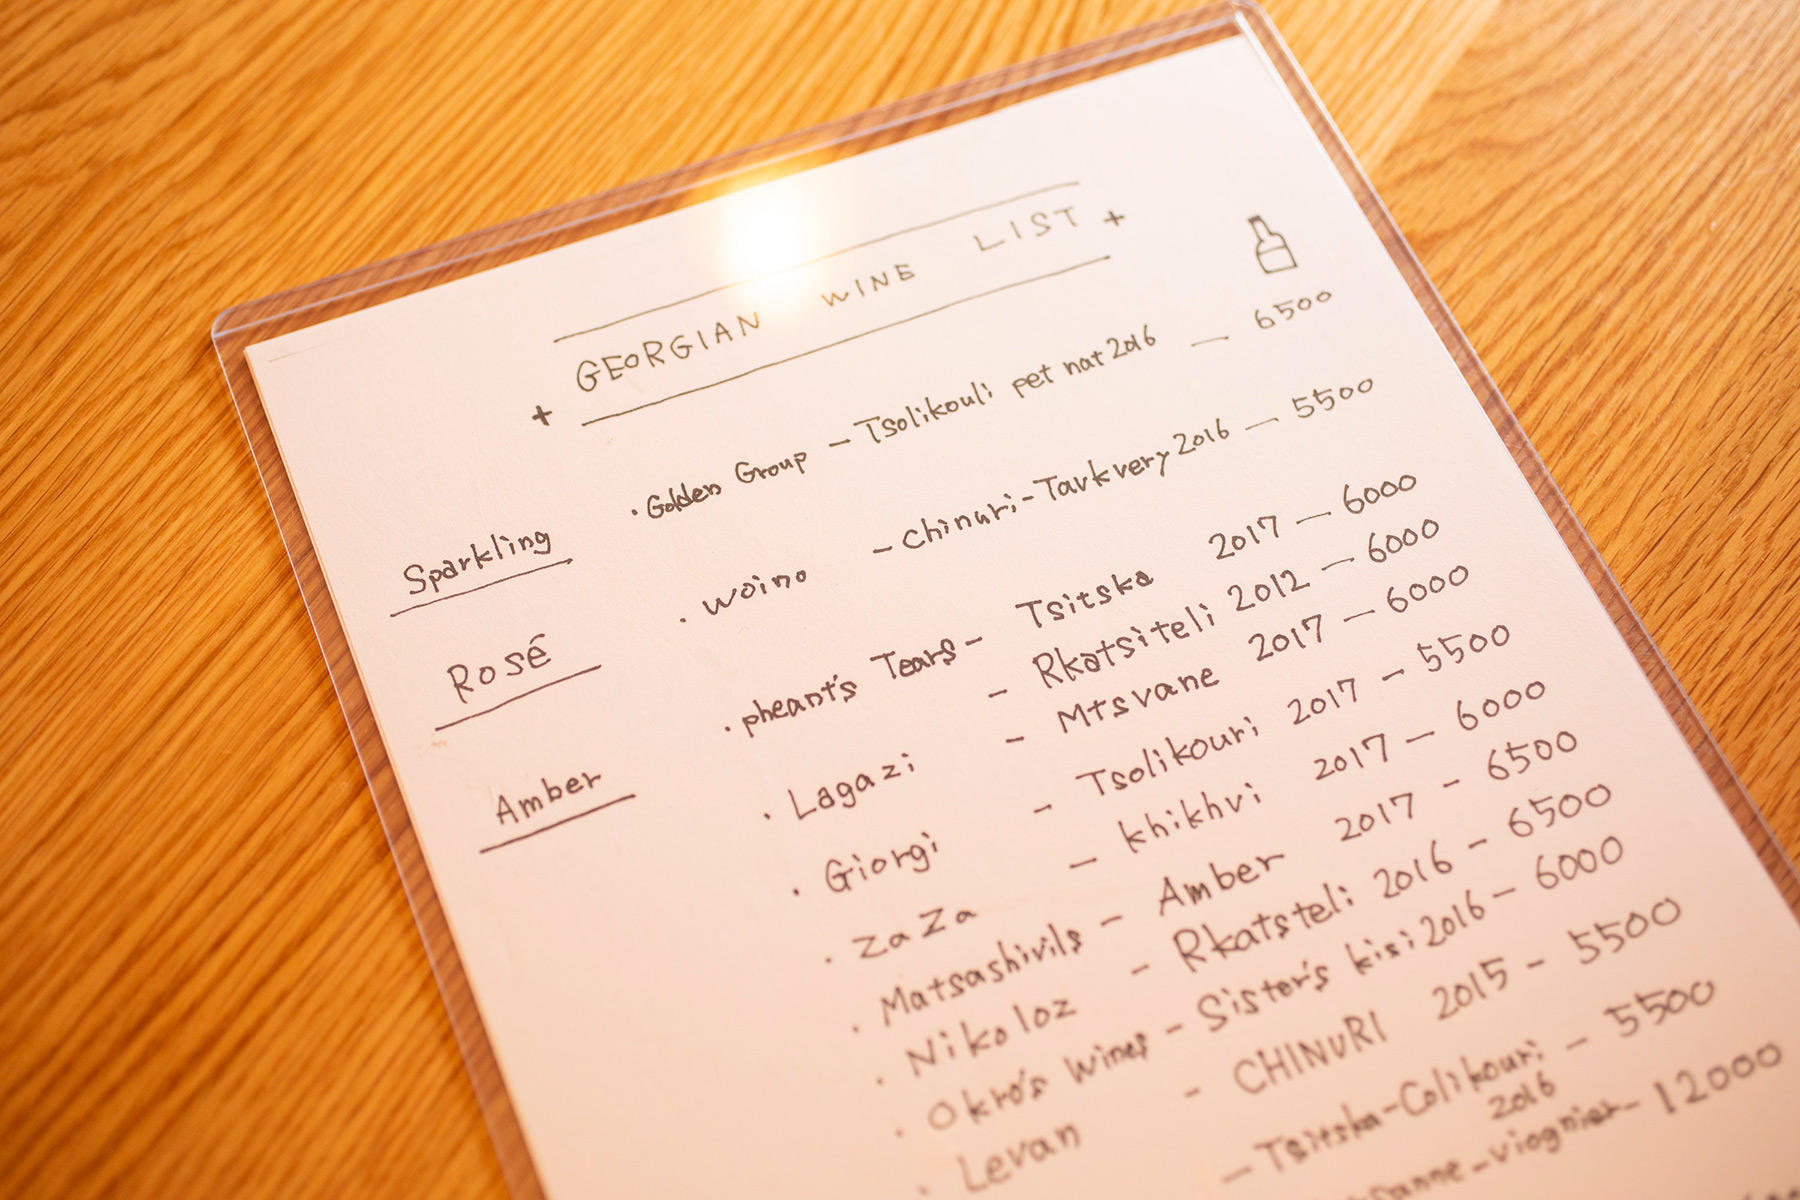 GEORGIAN WINE LIST
Sparkling · Golden Group – Tsolikouli pet nat 2016 — 6500
Rosé · woino – Chinuri-Tavkvery 2016 — 5500
Amber · pheant's Tears – Tsitska 2017 — 6000
– Rkatsiteli 2012 — 6000
· Lagazi – Mtsvane 2017 — 6000
· Giorgi – Tsolikouri 2017 – 5500
· ZaZa – khikhvi 2017 – 6000
· Matsashivils – Amber 2017 - 6500
· Nikoloz – Rkatsteli 2016 – 6500
· Okro's wines – Sister's kisi 2016 – 6000
· Levan – CHINURI 2015 – 5500
– Tsitska-Colikouri – 5500
2016
viognier – 12000